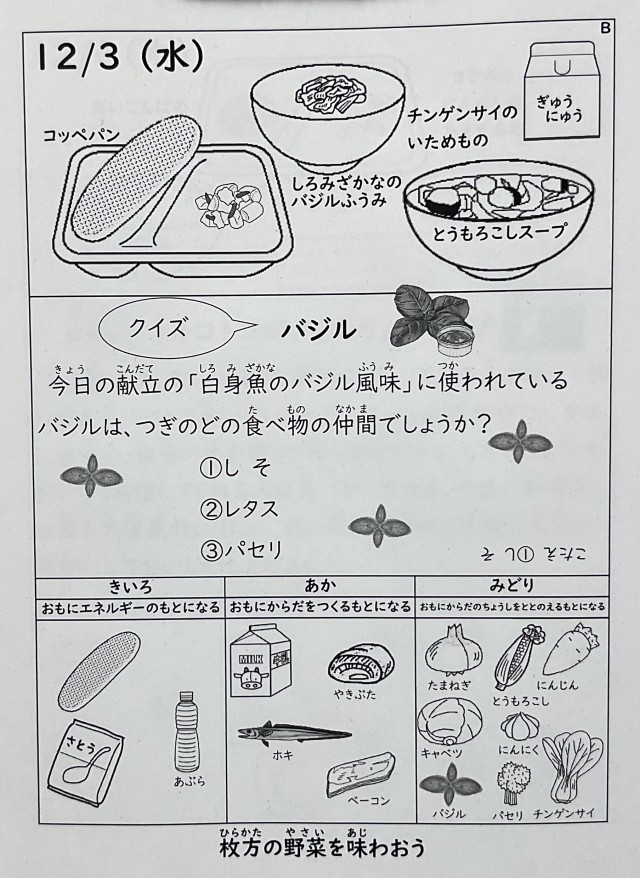 B
12/3（水）
コッペパン
チンゲンサイの
いためもの
ぎゅう
にゅう
しろみざかなの
バジルふうみ
とうもろこしスープ
クイズ
バジル
今日の献立の「白身魚のバジル風味」に使われている
きょう こんだて しろ み ざかな ふう み つか
バジルは、つぎのどの食べ物の仲間でしょうか？
た もの なか ま
①し そ
②レタス
③パセリ
こたえ ①し そ
きいろ
おもにエネルギーのもとになる
さとう
あぶら
あか
おもにからだをつくるもとになる
MILK
やきぶた
ホキ
ベーコン
みどり
おもにからだのちょうしをととのえるもとになる
たまねぎ
とうもろこし
にんじん
キャベツ
にんにく
バジル
パセリ
チンゲンサイ
ひらかた や さい あじ
枚方の野菜を味わおう